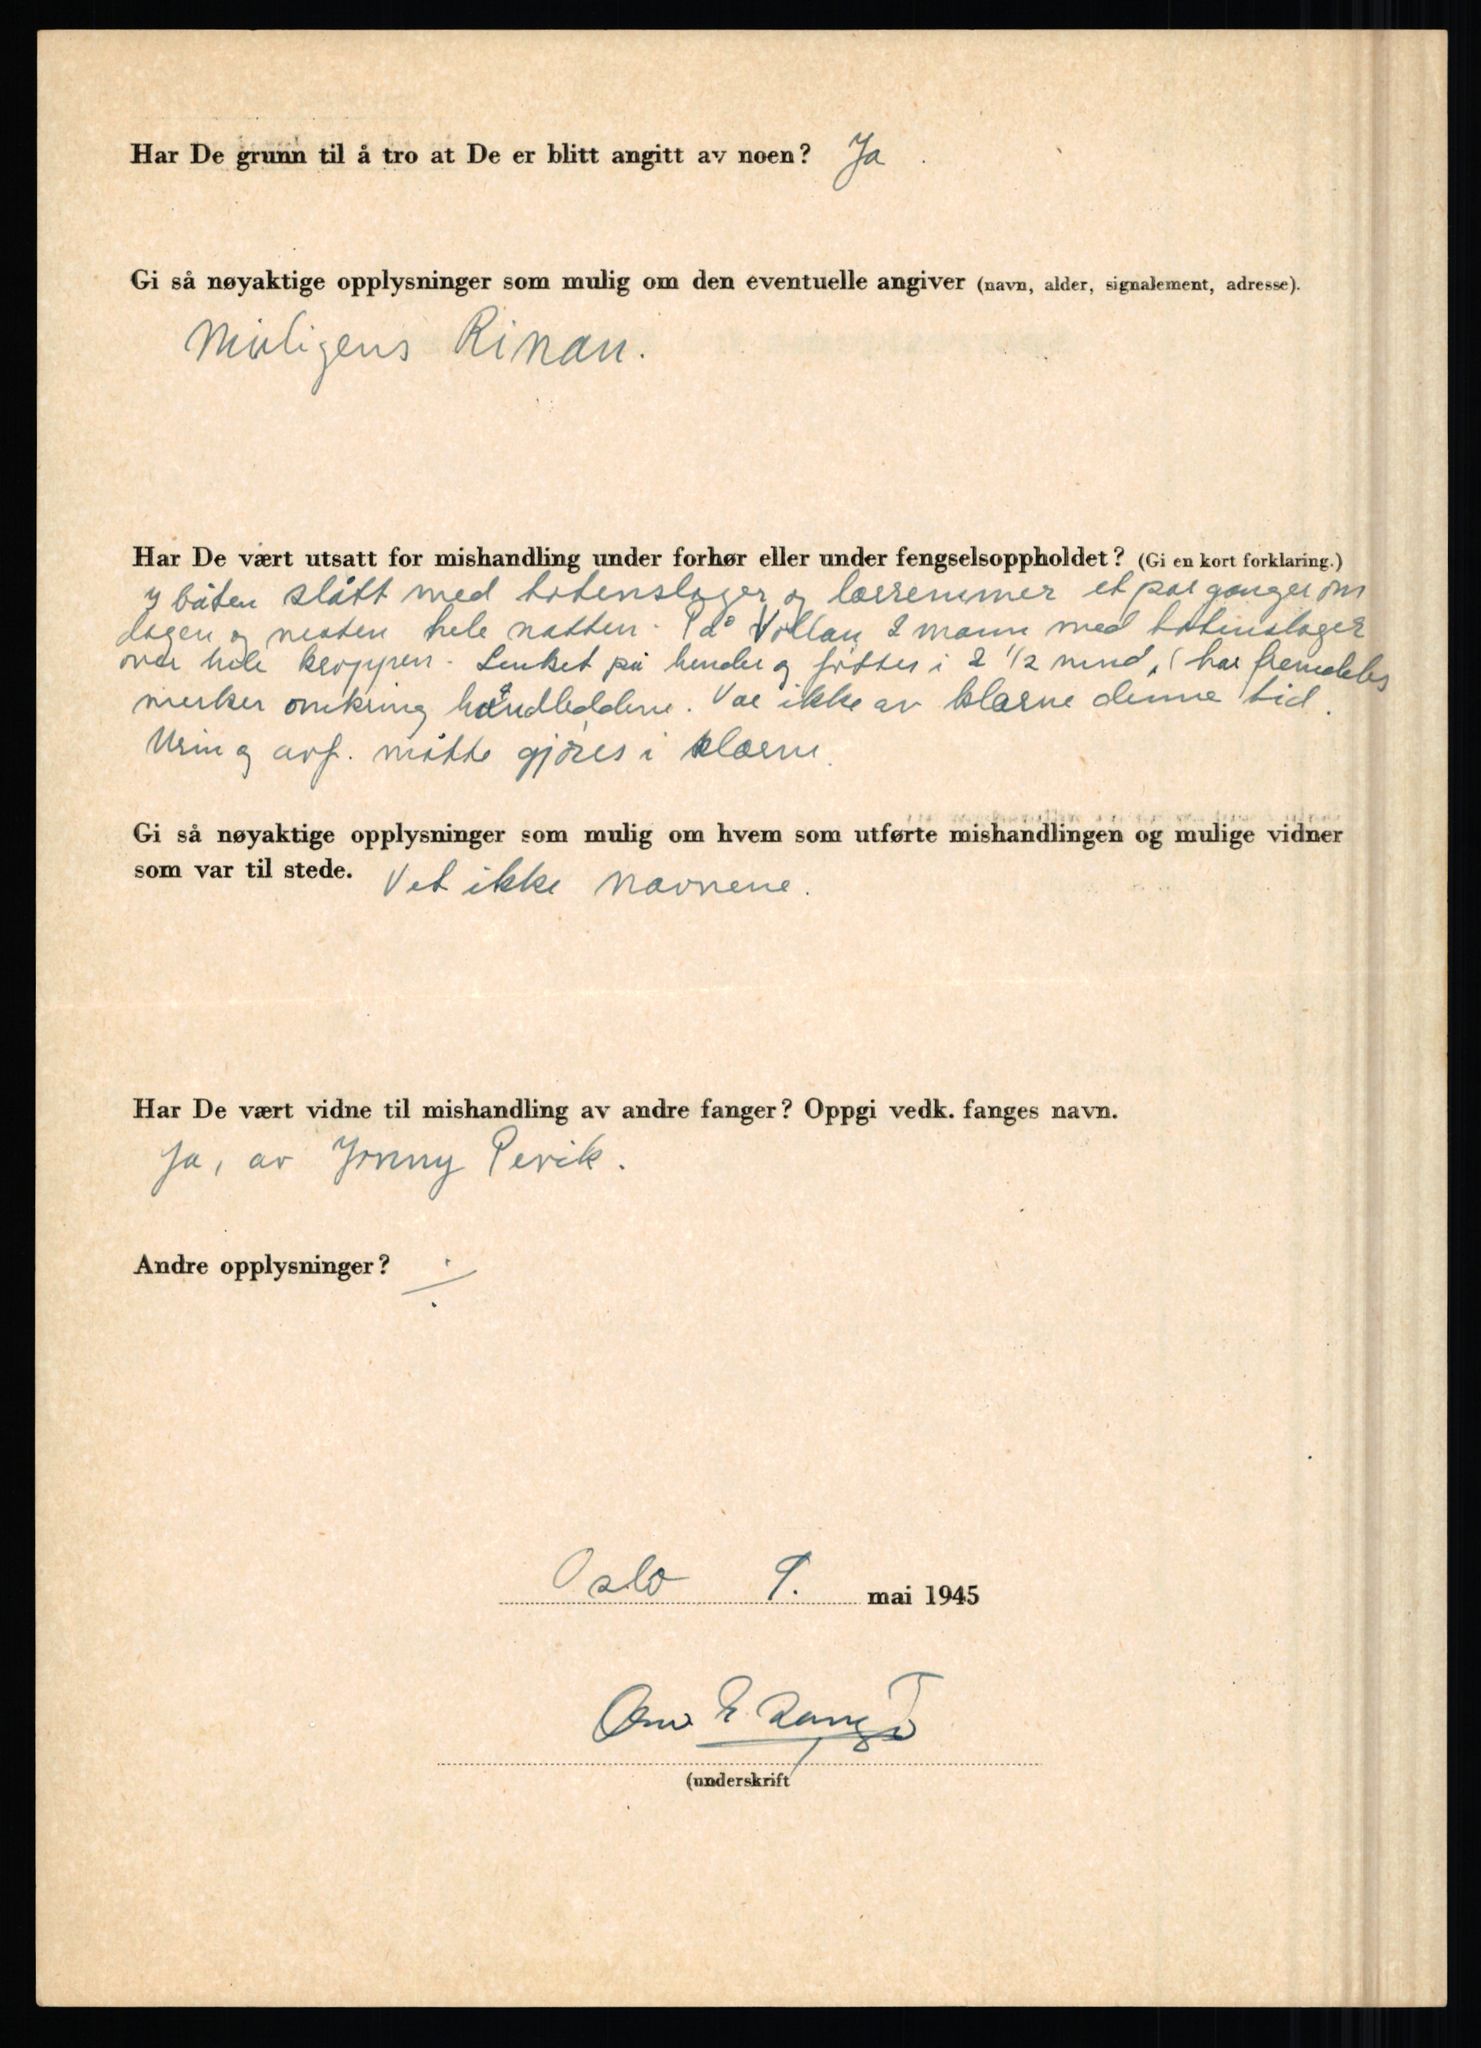 Har De grunn til å tro at De er blitt angitt av noen? Ja
Gi så nøyaktige opplysninger som mulig om den eventuelle angiver (navn, alder, signalement, adresse).
Muligens Rinan.
Har De vært utsatt for mishandling under forhør eller under fengselsoppholdet? (Gi en kort forklaring.)
I båten slått med totenslager og lærremmer et par ganger om
dagen og nesten hele natten. På Vollan 2 mann med totenslager
over hele kroppen. Lenket på hender og føtter i 2 1/2 mnd, (har fremdeles
merker omkring håndleddene. Var ikke av klærne denne tid.
Urin og avf. måtte gjøres i klærne.
Gi så nøyaktige opplysninger som mulig om hvem som utførte mishandlingen og mulige vidner
som var til stede. Vet ikke navnene.
Har De vært vidne til mishandling av andre fanger? Oppgi vedk. fanges navn.
Ja, av Jonny Pevik.
Andre opplysninger? ÷
Oslo 9. mai 1945
(underskrift)